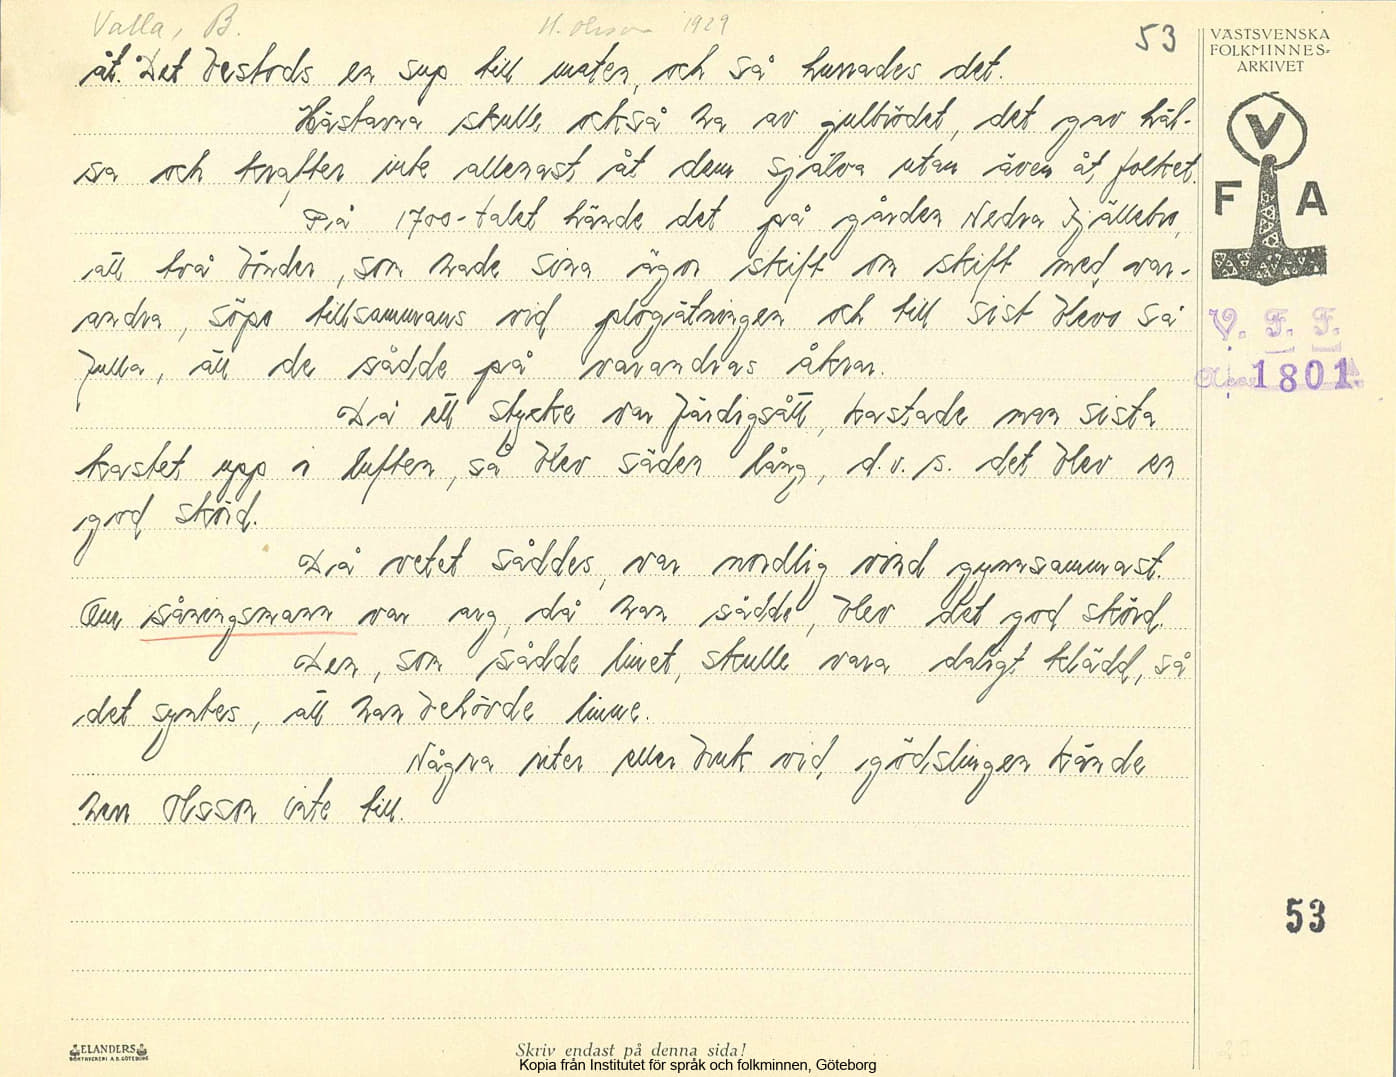 Valla, B. H. Olsson 1929 53
åt. Det bestods en sup till maten, och så hurrades det.
Hästarna skulle också ha av julbrödet, det gav häl-
sa och krafter inte allenast åt dem själva utan även åt folket.
På 1700-talet hände det på gården Nedra Fjällebo,
att två bönder, som hade sina ägor skift om skift med var-
andra, söpo tillsammans vid plogätningen och till sist blevo så
fulla, att de sådde på varandras åkrar.
Då ett stycke var färdigsått, kastade man sista
kastet upp i luften, så blev säden lång, d.v.s. det blev en
god skörd.
Då vetet såddes, var nordlig vind gynnsammast.
Om såningsmann var arg, då han sådde, blev det god skörd.
Den, som sådde linet, skulle vara dåligt klädd, så
det syntes, att han behövde linne.
Några riter eller bruk vid gödslingen kände
herr Olsson inte till.
VÄSTSVENSKA
FOLKMINNES-
ARKIVET
V
F A
V. F. F.
1801.
53
ELANDERS
BOKTRYCKERI A.B. GÖTEBORG
Skriv endast på denna sida!
Kopia från Institutet för språk och folkminnen, Göteborg